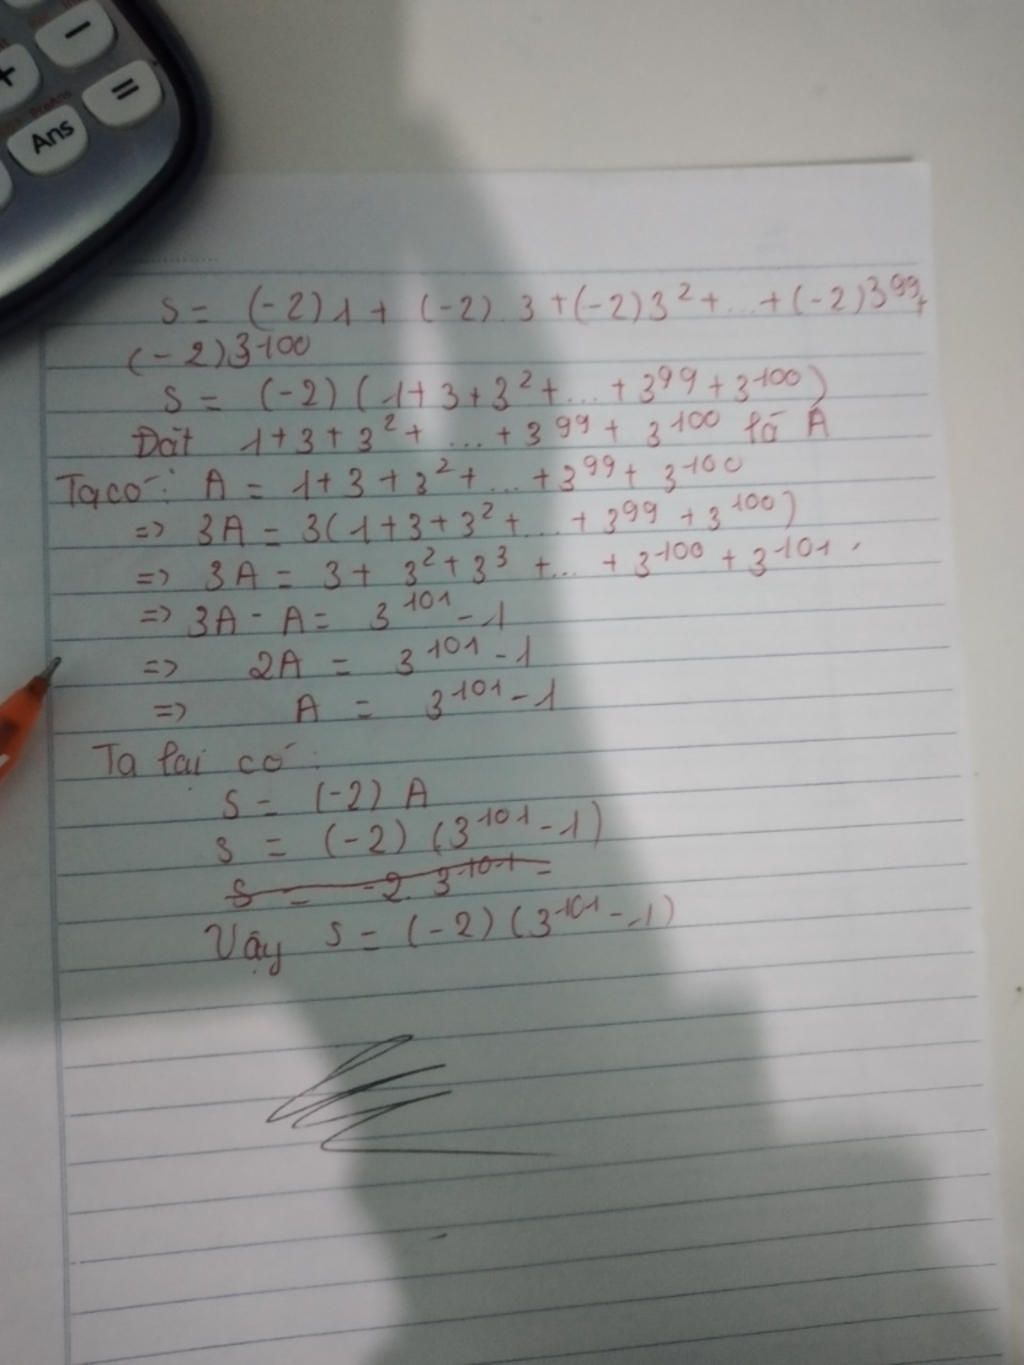 −
+
=
PreAns
Ans
S = (-2)1 + (-2).3 + (-2)3² + ... + (-2)3⁹⁹ +
(-2)3¹⁰⁰
S = (-2)(1+3+3²+... + 3⁹⁹ + 3¹⁰⁰)
Đặt 1+3+3²+ ... + 3⁹⁹ + 3¹⁰⁰ là A
Ta có: A = 1+3+3²+ ... +3⁹⁹+ 3¹⁰⁰
=> 3A = 3(1+3+3²+ ... + 3⁹⁹ + 3¹⁰⁰)
=> 3A = 3+ 3²+3³ +... + 3¹⁰⁰ + 3¹⁰¹.
=> 3A - A = 3¹⁰¹ - 1
=> 2A = 3¹⁰¹ - 1
=> A = 3¹⁰¹ - 1
Ta lại có:
S = (-2) A
S = (-2) (3¹⁰¹ - 1)
S = -2. 3¹⁰¹ =
Vậy S = (-2) (3¹⁰¹ - 1)